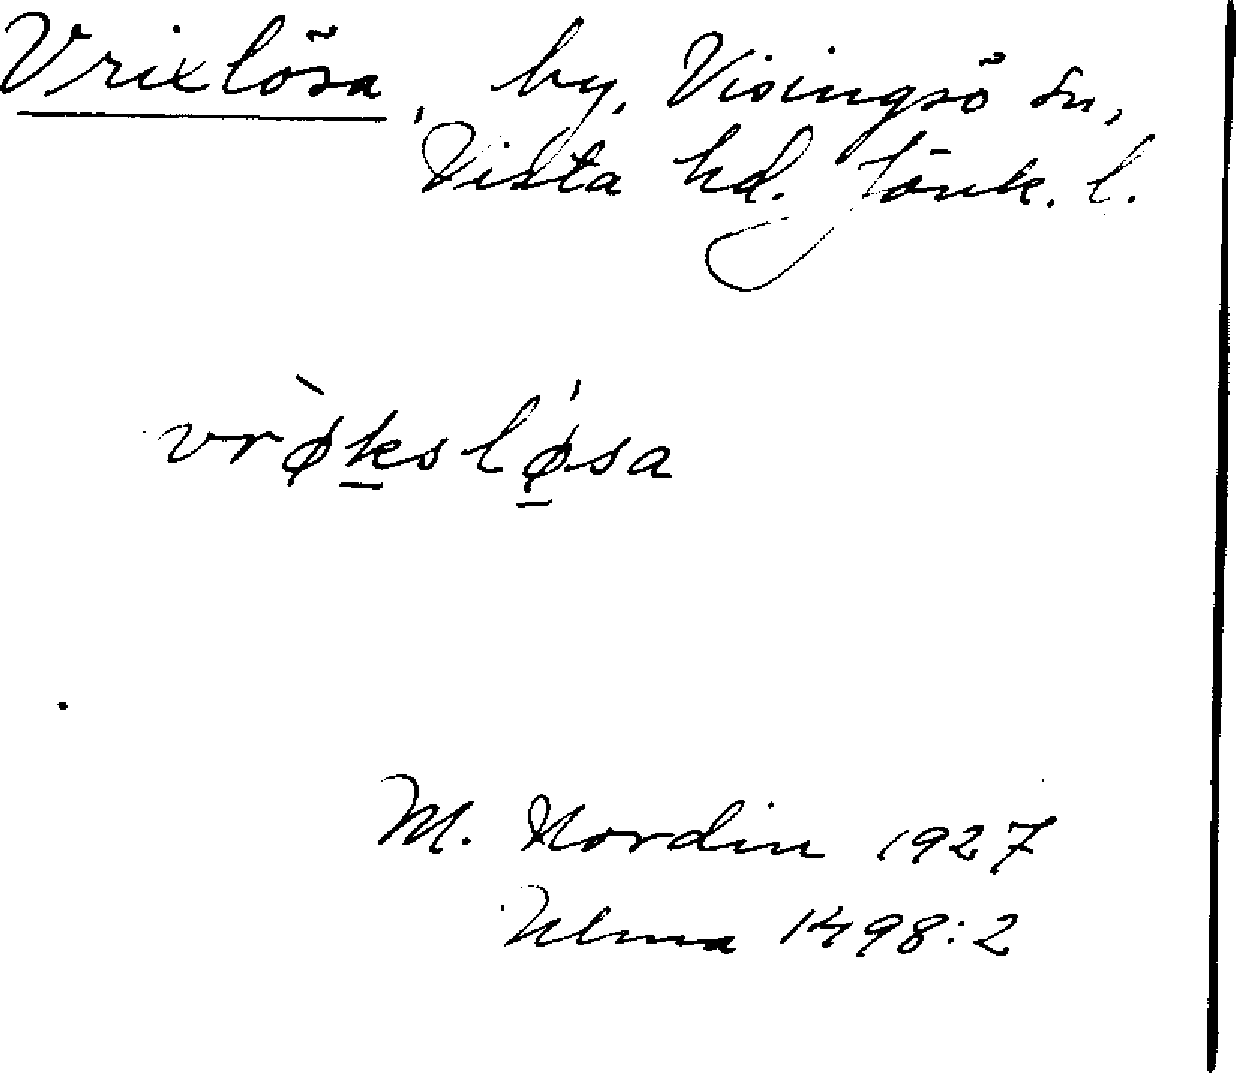 Vrixlösa, by, Visingsö sn,
Vista hd. Jönk. l.
vrø̀ksló̷sa
M. Nordin 1927
Ulma 1498:2